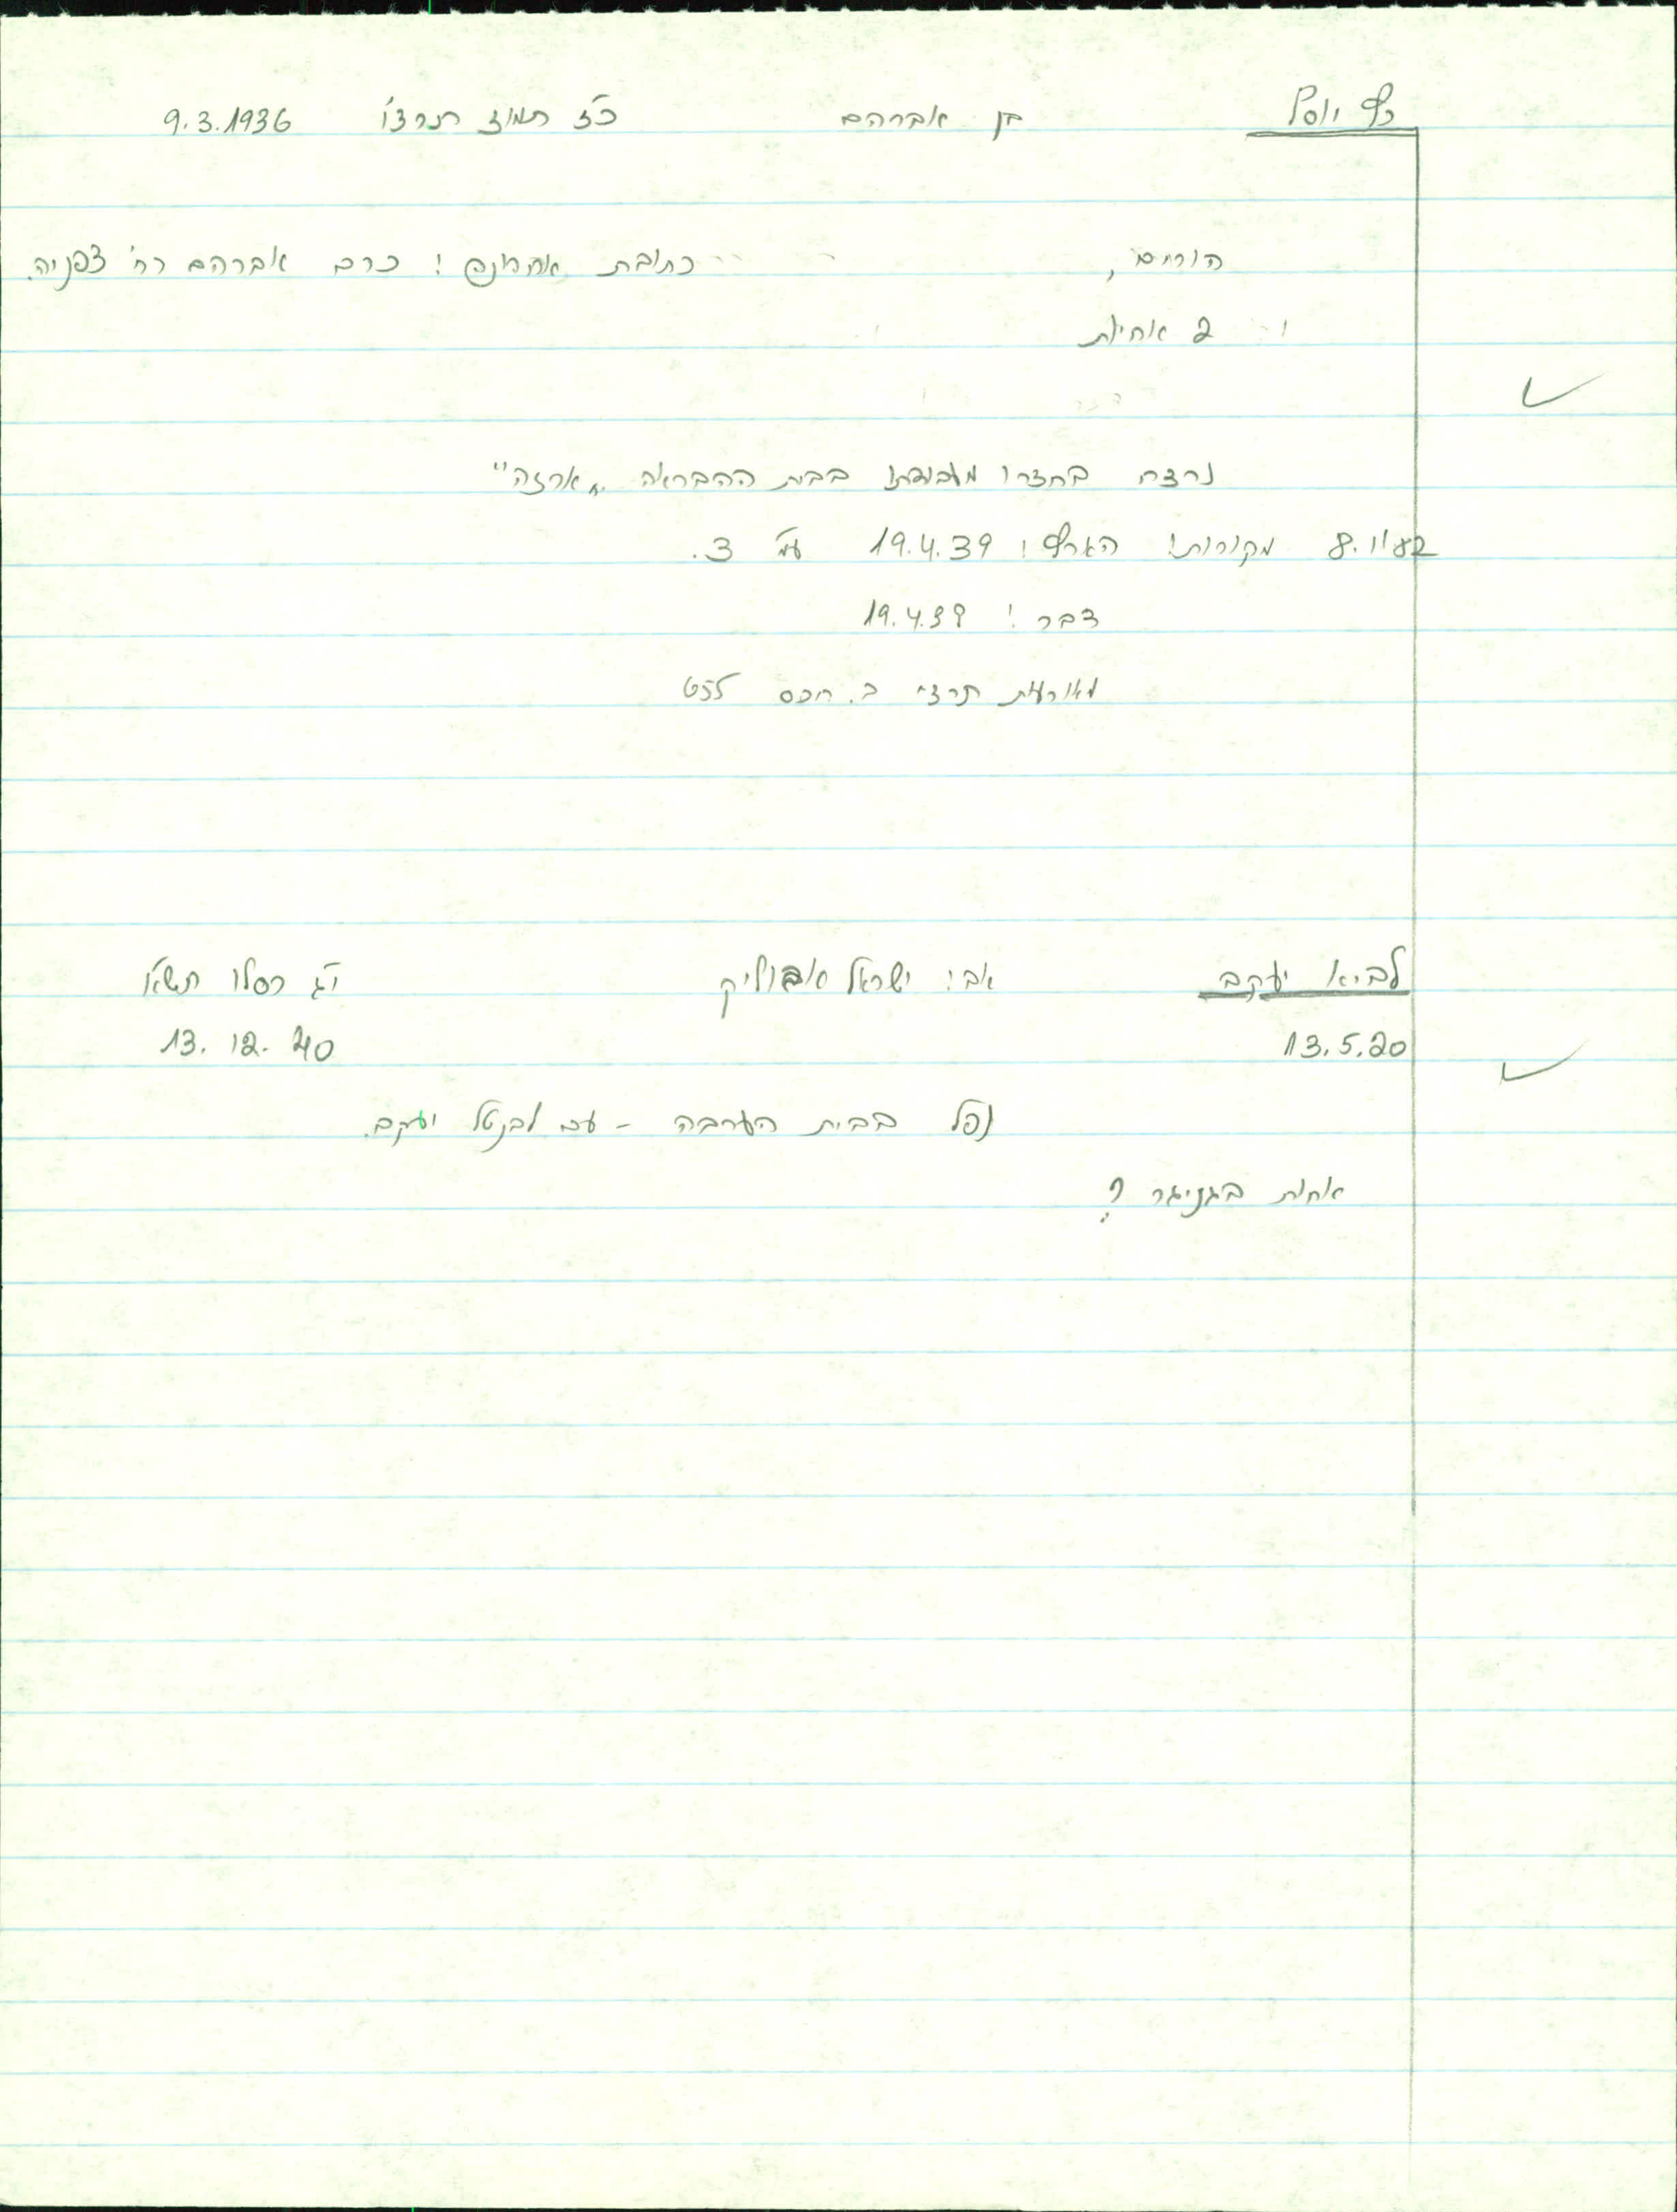 כץ יוסף בן אברהם כ"ז תמוז תרצ"ו 9.3.1936
הורים, כתובת אחרונה: כרם אברהם רח' צפניה.
ו- 2 אחיות
נרצח בחצרו בבית ההבראה "ארזה"
8.11.82 מקורות: הארץ: 19.4.39 עמ' 3.
דבר: 19.4.39
מאורעות תרצ"ו ב. הכט 655
לביא יעקב אב: ישראל סובוליק י"ג כסלו תש"א
13.5.20 13.12.40
נפל בבית הערבה - עם לבנטל יעקב.
אחות בגניגר?